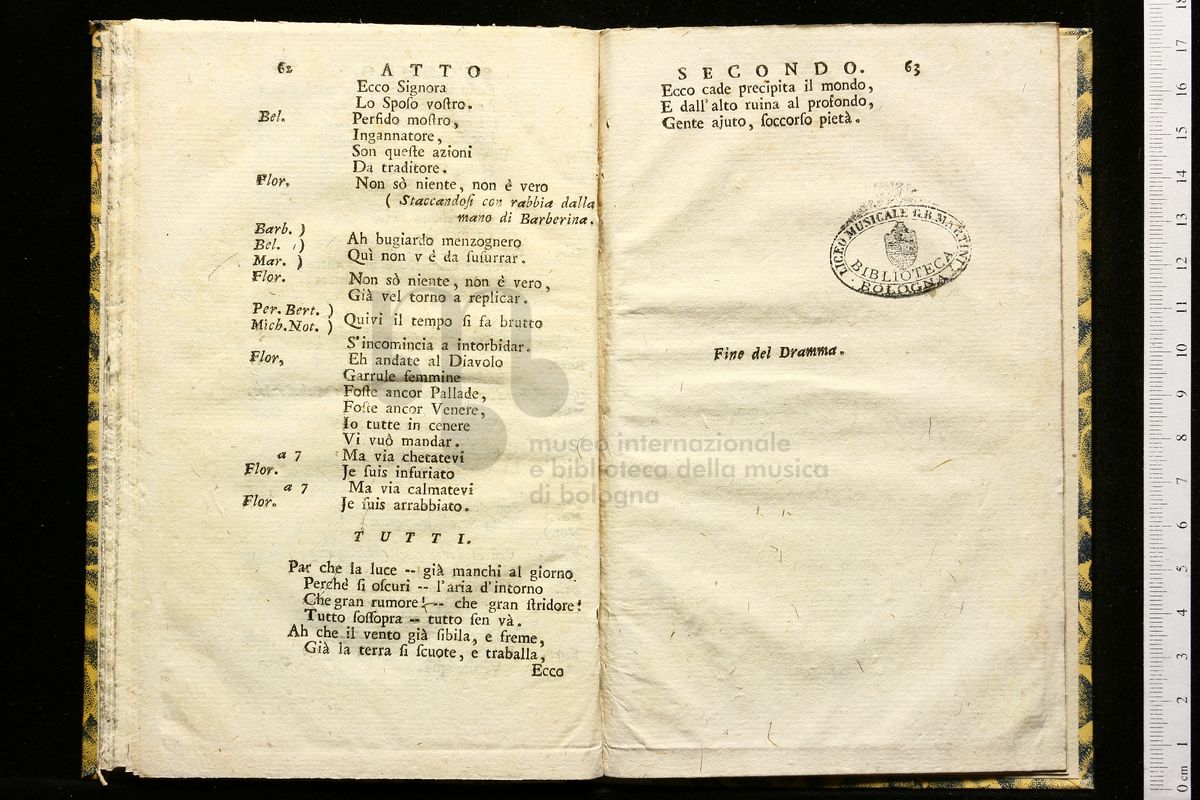 62 ATTO
Ecco Signora
Lo Sposo vostro.
Bel. Perfido mostro,
Ingannatore,
Son queste azioni
Da traditore.
Flor. Non sò niente, non è vero
( Staccandosi con rabbia dalla
mano di Barberina.
Barb. )
Bel. ) Ah bugiardo menzognero
Mar. ) Quì non v è da susurrar.
Flor. Non sò niente, non è vero,
Già vel torno a replicar.
Per. Bert. )
Mich. Not. ) Quivi il tempo si fa brutto
S'incomincia a intorbidar.
Flor, Eh andate al Diavolo
Garrule femmine
Foste ancor Pallade,
Foste ancor Venere,
Io tutte in cenere
Vi vuò mandar.
a 7 Ma via chetatevi
Flor. Je suis infuriato
a 7 Ma via calmatevi
Flor. Je suis arrabbiato.
TUTTI.
Par che la luce -- già manchi al giorno
Perchè si oscuri -- l'aria d'intorno
Che gran rumore! -- che gran stridore!
Tutto sossopra -- tutto sen và.
Ah che il vento già sibila, e freme,
Già la terra si scuote, e traballa,
Ecco
SECONDO. 63
Ecco cade precipita il mondo,
E dall'alto ruina al profondo,
Gente ajuto, soccorso pietà.
LICEO MUSICALE G.B. MARTINI
BIBLIOTECA
BOLOGNA
Fine del Dramma.
museo internazionale
e biblioteca della musica
di bologna
0 cm 1 2 3 4 5 6 7 8 9 10 11 12 13 14 15 16 17 18